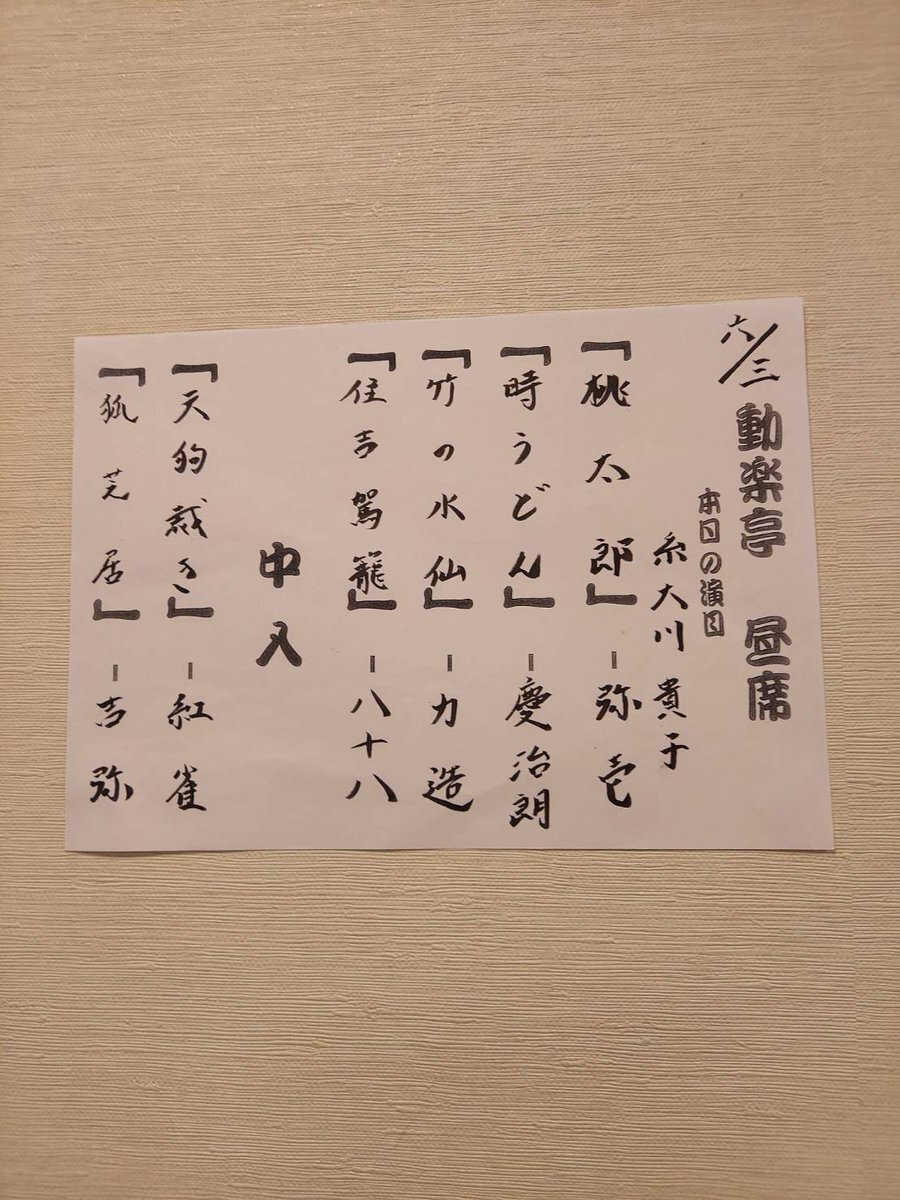 六/三 動楽亭 昼席
本日の演目
糸大川 貴子
「桃太郎」-弥壱
「時うどん」-慶治朗
「竹の水仙」-力造
「住吉駕籠」-八十八
中入
「天狗裁き」-紅雀
「狐芝居」-吉弥